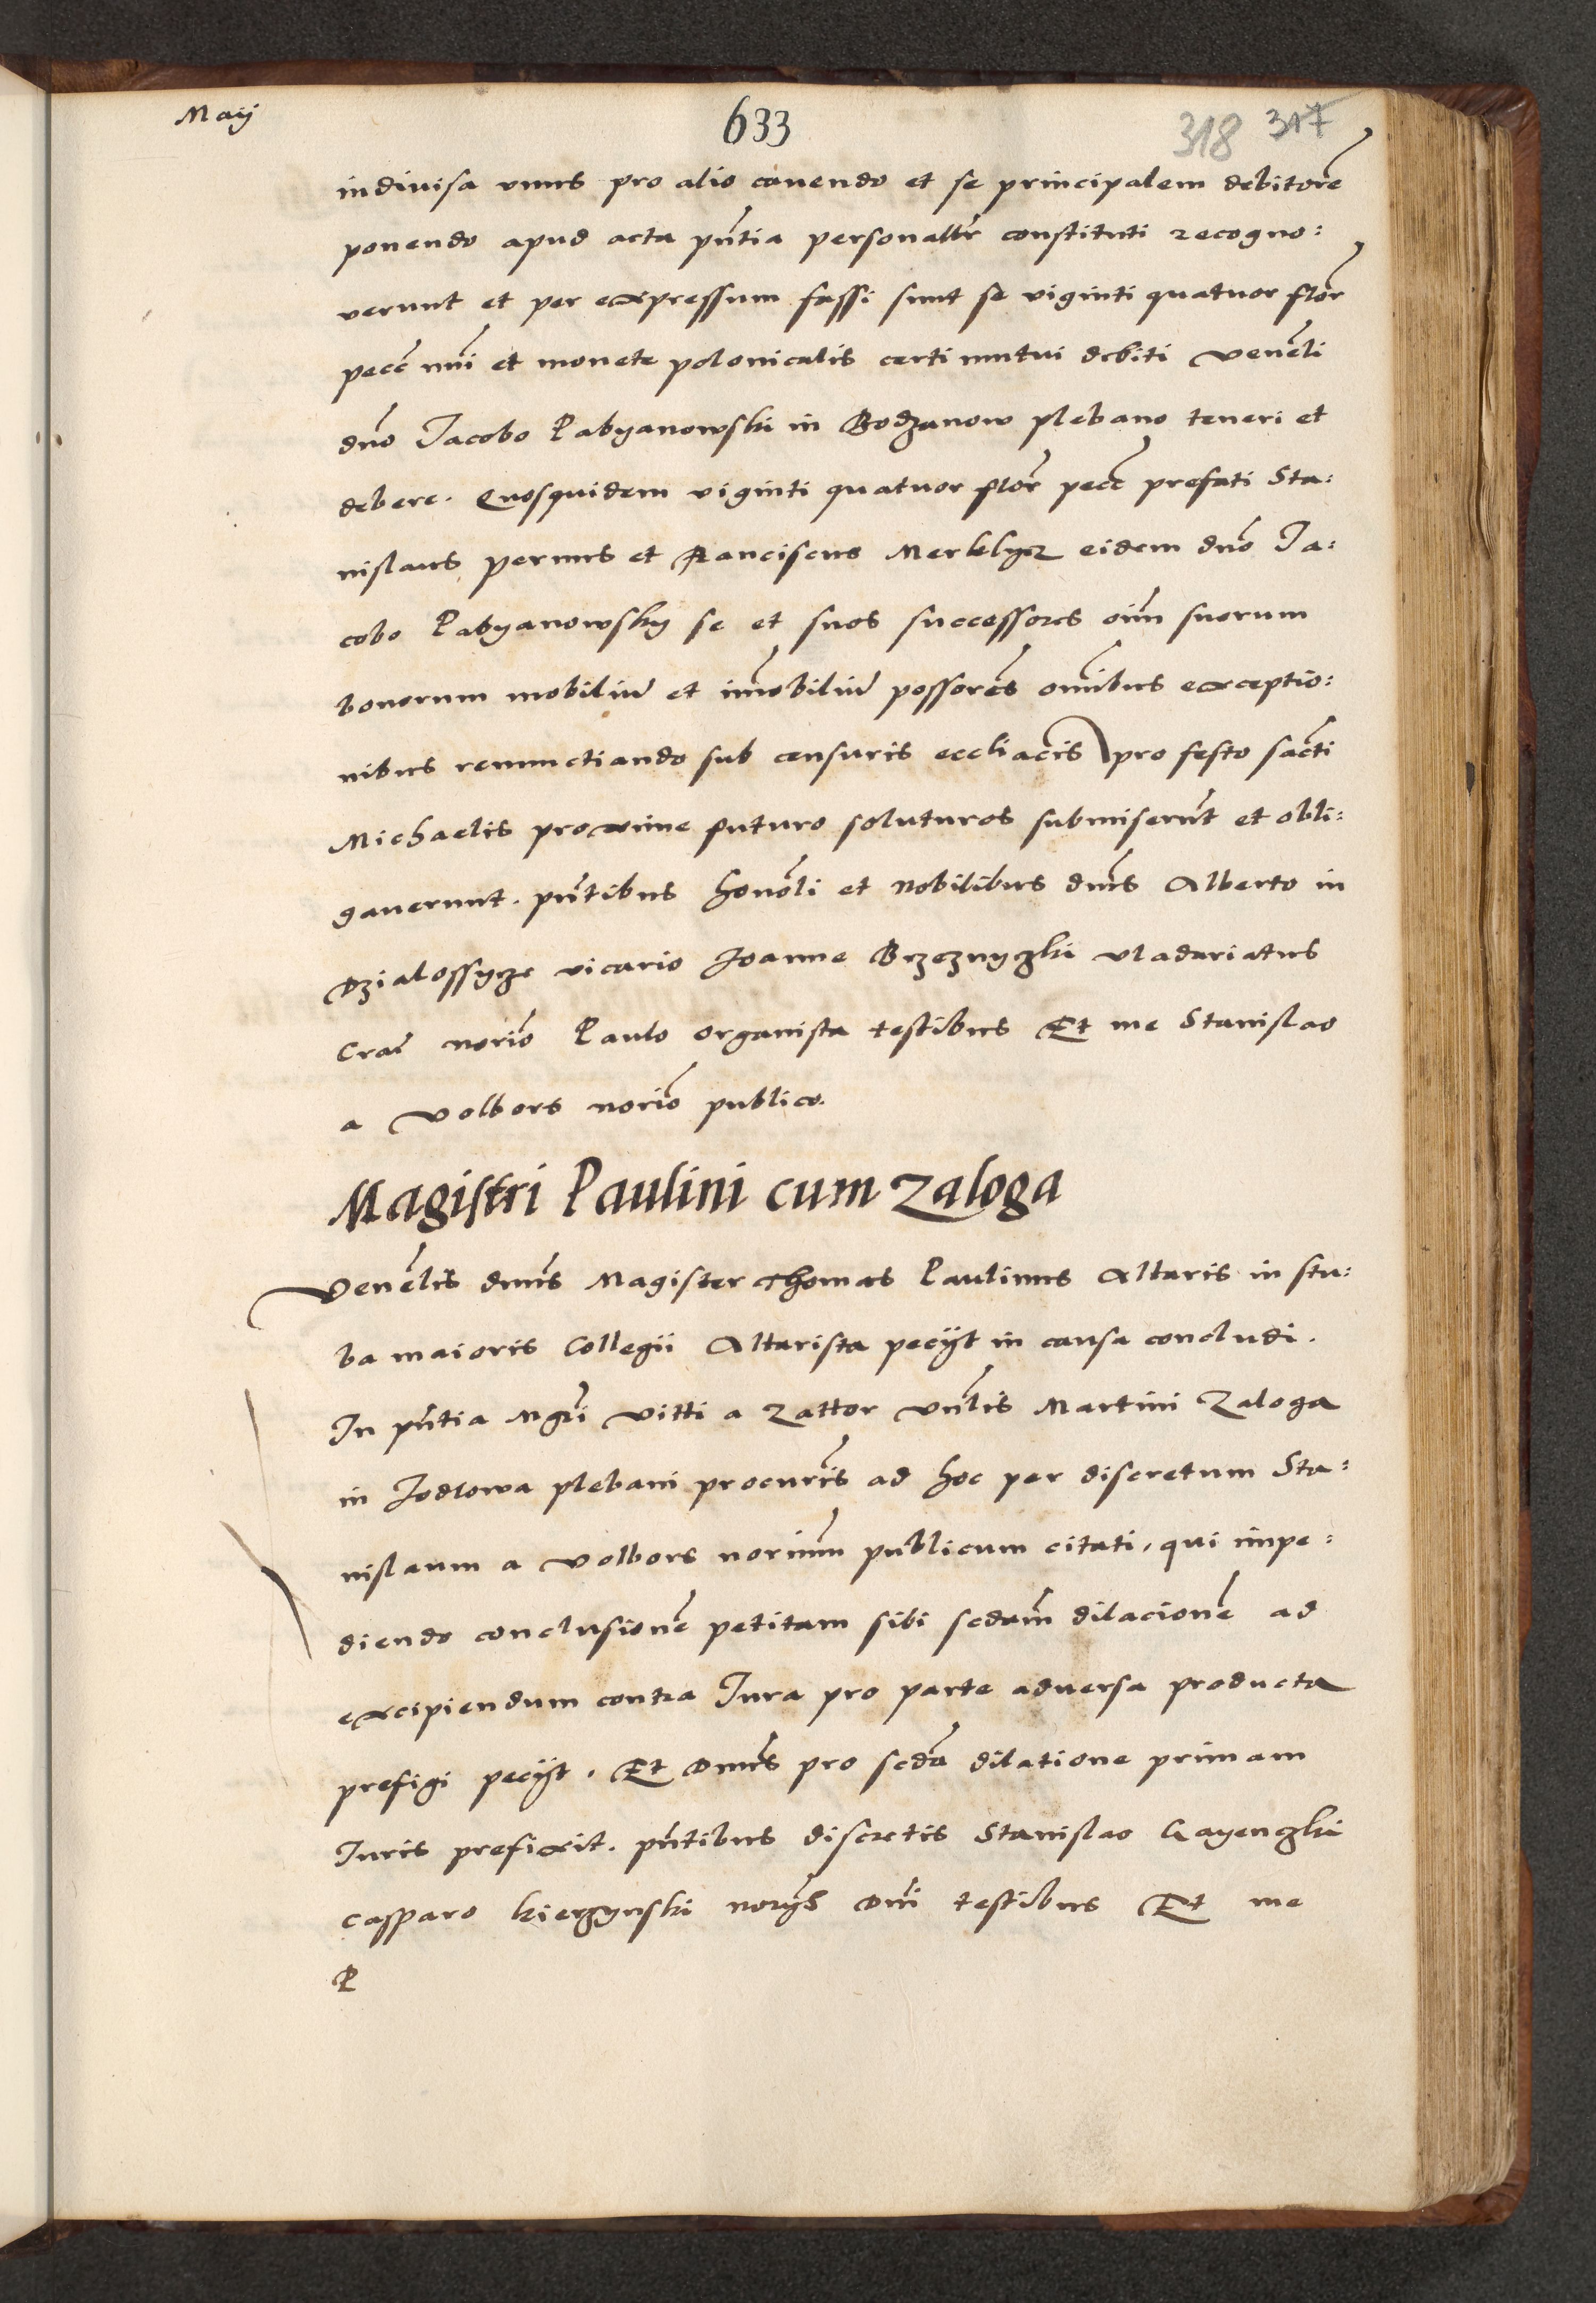 Maij
633
318 317
indivisa unus pro alio cavendo et se principalem debitorē
ponendo apud acta pn̄tia personalr̄ constituti recogno:
verunt et per expressum fassi sunt se viginti quatuor flor̄
pecc̄ nūi et monete polonicalis certi mutui debiti venēli
dn̄o Jacobo Pabyanowski in Bodzanow plebano teneri et
debere. Quosquidem viginti quatuor flor̄ pecc̄ prefati Sta:
nislaus Pernus et Franciscus Merklycz eidem dn̄o Ja:
cobo Pabyanowsky se et suos successores oīm suorum
bonorum mobiliū et im̄obiliū possorēs om̄ibus exceptio:
nibus renunctiando sub censuris eccliacīs pro festo sācti
Michaelis proxime futuro soluturos submiserūt et obli:
gaverunt. pn̄tibus honōli et Nobilibus dn̄is Alberto in
Dzialossycze vicario Joanne Brzeznyczki vladariatus
Crac̄ norīo Paulo organista testibus Et me Stanislao
a Volbors norīo publico.
Magistri Paulini cum Zaloga
Venēlis dn̄us Magister Thomas Paulinus Altaris in stu:
ba maioris Collegii Altarista peciјt in causa concludi.
In pn̄tia Mgr̄i Vitti a Zattor vn̄lis Martini Zaloga
in Jodlowa plebani procurīs ad hoc per discretum Sta:
nislaum a Volbors norium publicum citati, qui impe:
diendo conclusionē petitam sibi sedam̄ dilacionē ad
excipiendum contra Jura pro parte adversa producta
prefigi peciјt. Et Dn̄us pro sedā dilatione primam
Juris prefixit. pn̄tibus discretis Stanislao Gayenczki
Casparo kierzynski norijs Dn̄i testibus Et me
P